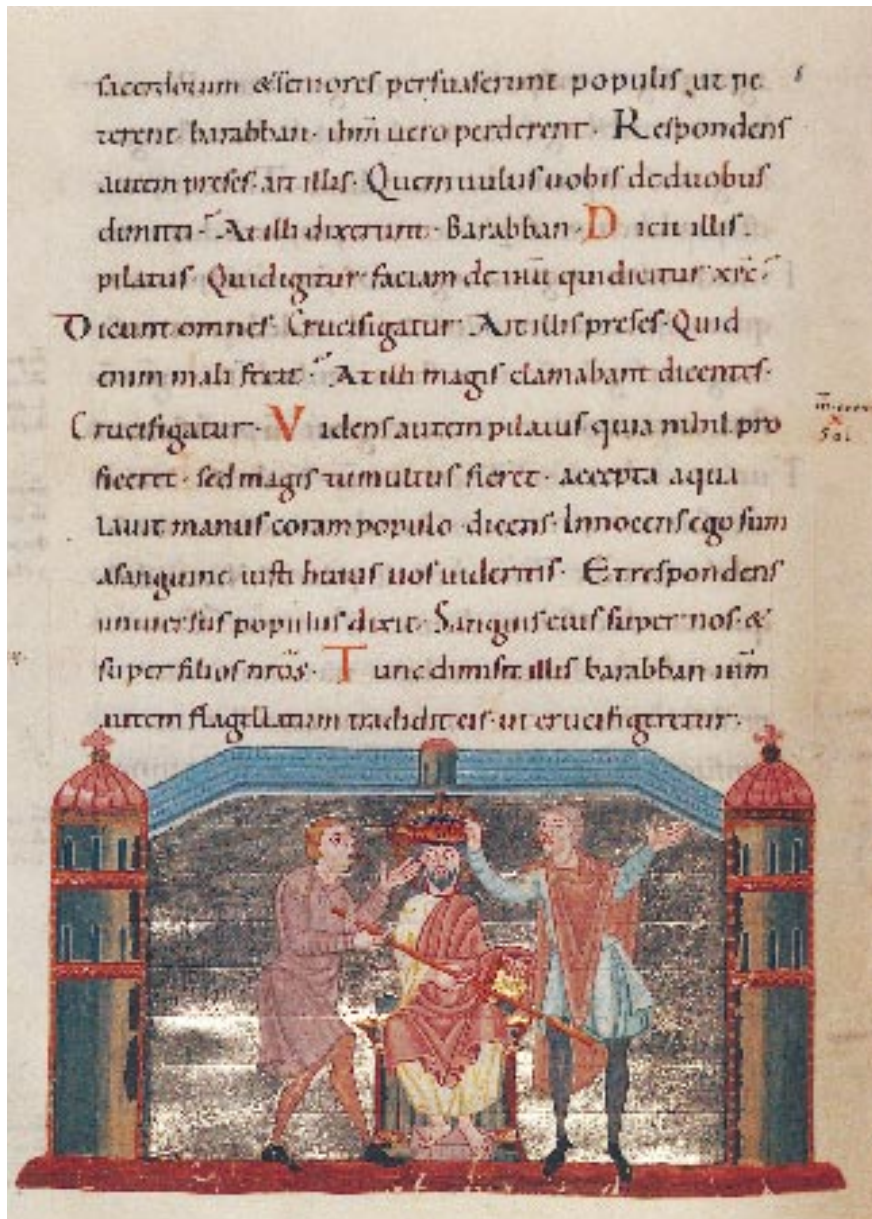 sacerdotum & seniores persuaserunt populis ut pe
terent barabban· ihm̅ uero perderent· Respondens
autem preses· ait illis· Quem uultis uobis de duobus
dimitti· At illi dixerunt· Barabban· Dicit illis·
pilatus· Quid igitur faciam de ihu̅ qui dicitur xp̅c·
Dicunt omnes· Crucifigatur· Ait illis preses· Quid
enim mali fecit· At illi magis clamabant dicentes·
Crucifigatur· Videns autem pilatus quia nihil pro
ficeret· sed magis tumultus fieret· accepta aqua
lauit manus coram populo dicens· Innocens ego sum
a sanguine iusti huius uos uideritis· Et respondens
uniuersus populus dixit· Sanguis eius super nos· &
super filios nr̅os· Tunc dimisit illis barabban ihm̅
autem flagellatum tradidit eis· ut crucifigeretur·